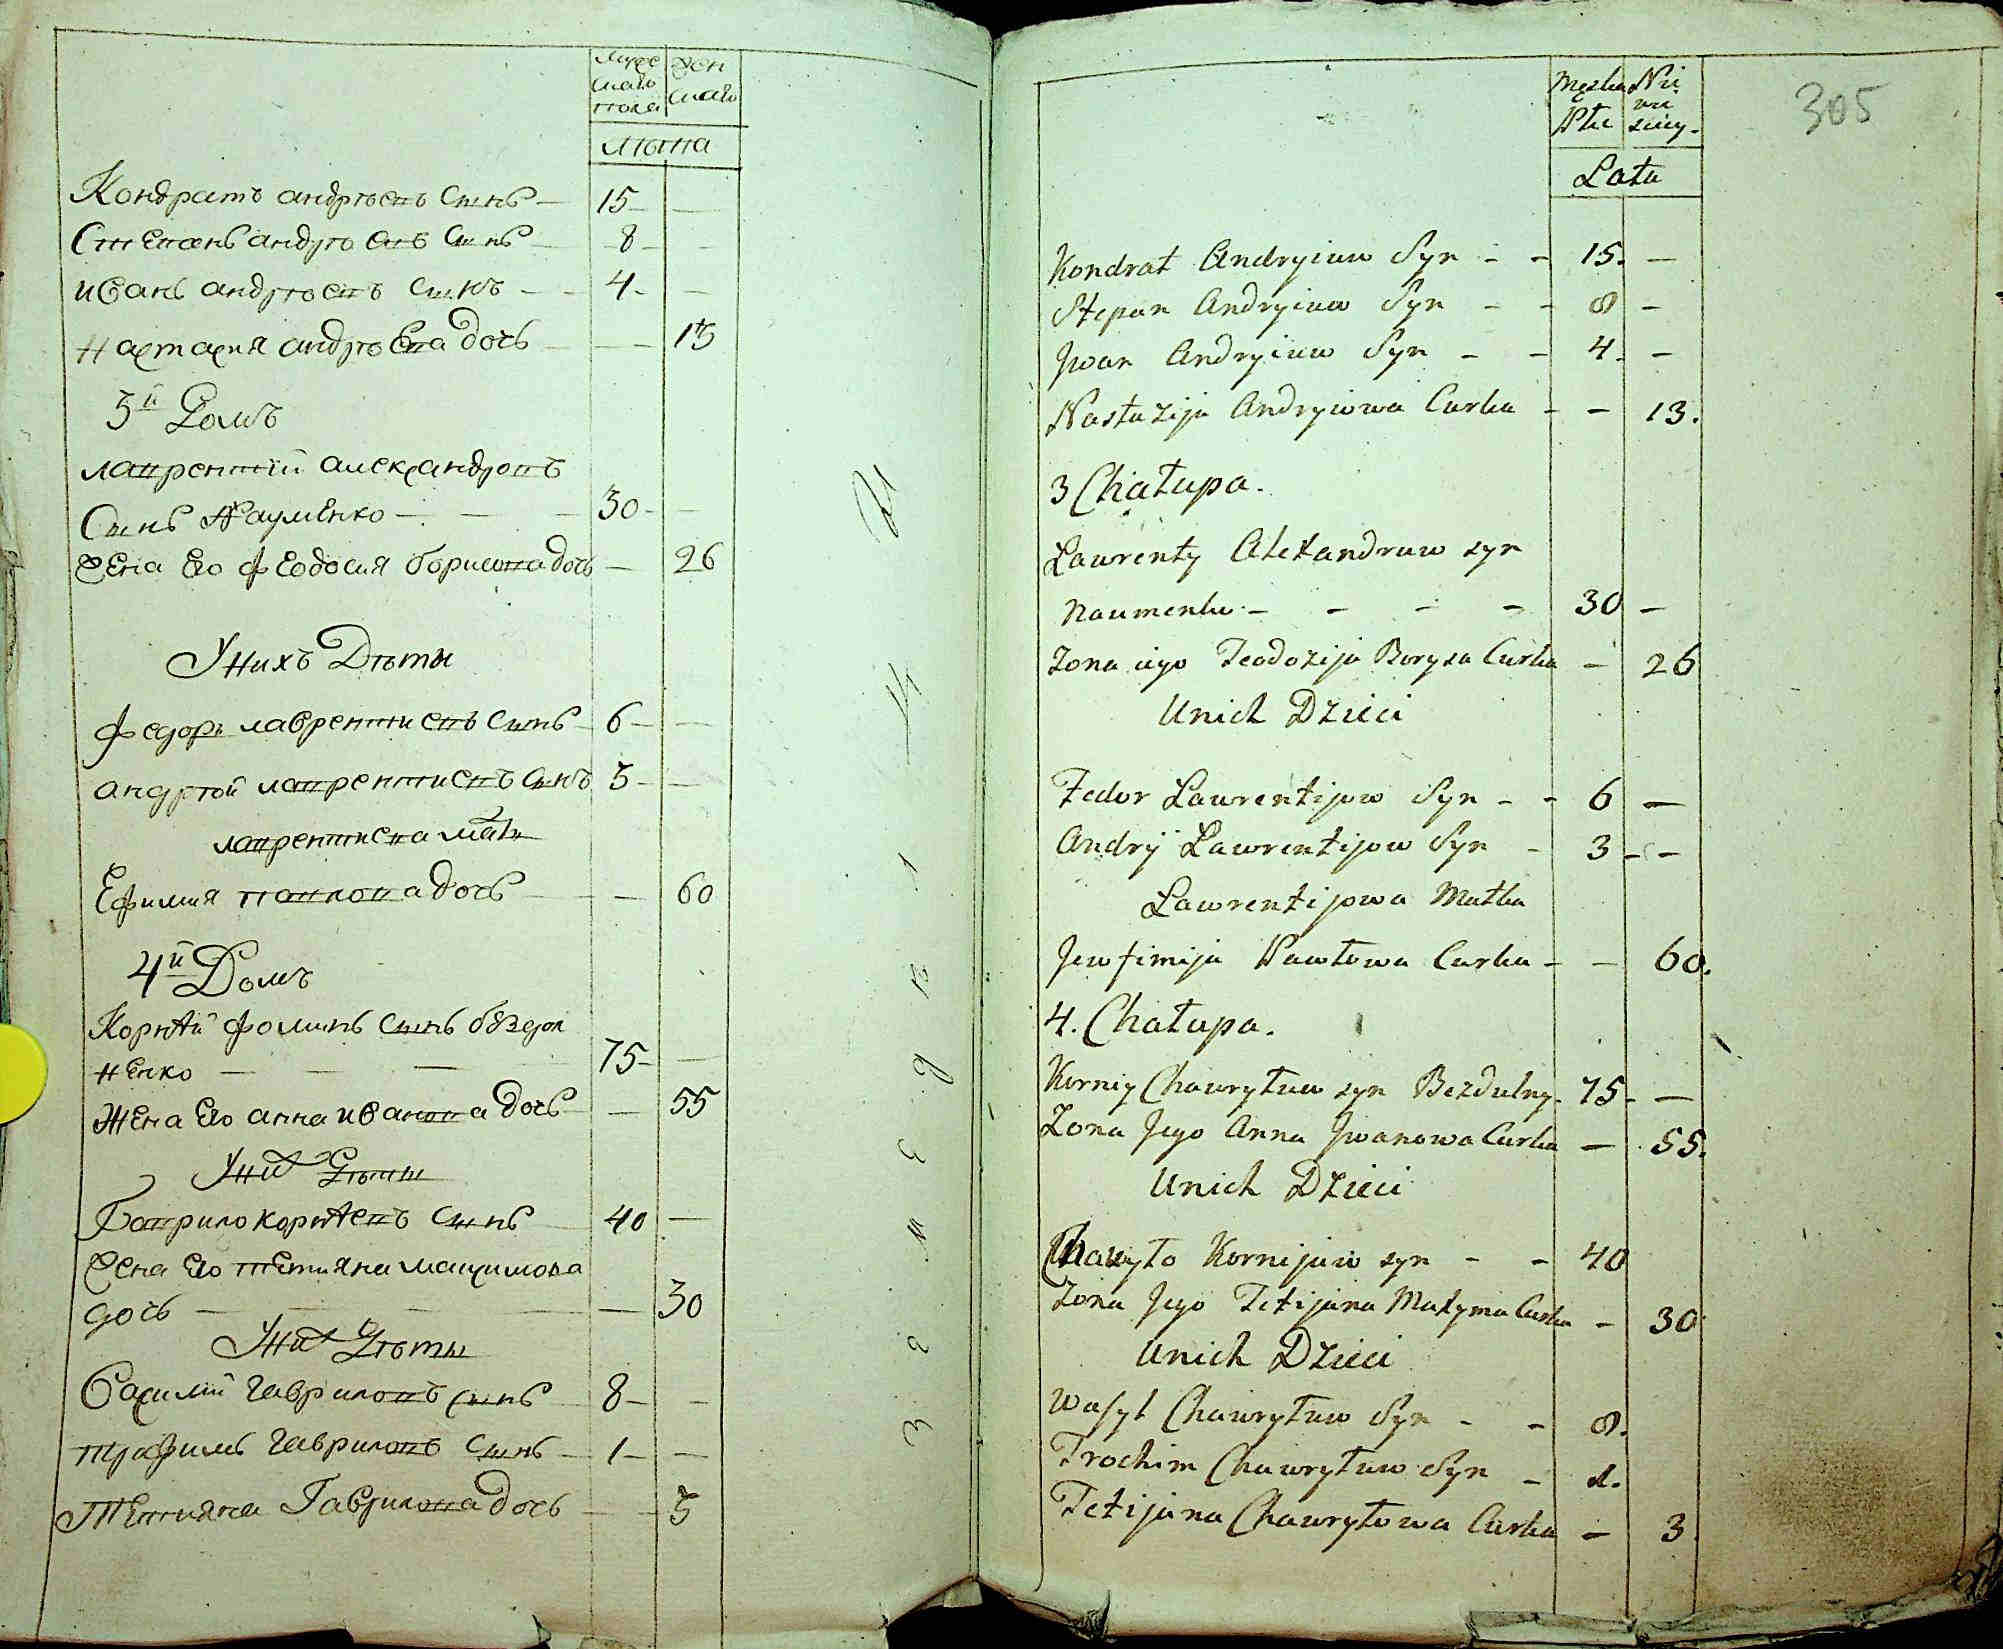 Муже
скаго
пола
Жен
скаго
лѣта
Кондратъ андрѣевъ сынъ — 15 —
Степанъ андрѣевъ сынъ — 8 —
иванъ андрѣевъ сынъ — 4 —
настасия андрѣева дочь — 13
3й Домъ
лаврентий александровъ
сынъ Науменко — 30 —
жена его феодосия борисова дочь — 26
У нихъ Дѣти
федоръ лаврентиевъ сынъ 6 —
андрѣй лаврентиевъ сынъ 3 —
лаврентиева мать
Ефимия павлова дочь — 60
4й Домъ
Корнѣй фоминъ сынъ бездол
ненко — 75 —
Жена его анна иванова дочь — 55
У них Дѣти
Гаврило корнѣевъ сынъ 40 —
жена его тетияна максимова
дочь — 30
У них Дѣти
Василий гавриловъ сынъ 8 —
трофимъ гавриловъ сынъ 1 —
Тетияна Гаврилова дочь — 3
305
Męska
Płu
Nie
wia
sciey
Lata
Kondrat Andryiuw Syn - - 15. —
Stepan Andryiuw Syn - - 8 —
Jwan Andryiuw Syn - - 4. —
Nastazija Andryiowa Curka - - 13.
3 Chałupa.
Lawrenty Alexandruw syn
Naumenku - - - - 30 —
Zona iego Teodozija Borysa Curka - 26
Unich Dzieci
Fedor Lawrentijow Syn - - 6 —
Andrij Lawrentijow Syn - 3 - -
Lawrentijowa Matka
Jewfimija Pawłowa Curka - - 60.
4. Chałupa.
Korniy Chawryłuw syn Bezdulny. 75 - —
Zona Jego Anna Jwanowa Curka — 55.
Unich Dzieci
Chawryło Kornijuw syn - - 40
Zona Jego Tetijana Maxyma Curka - 30
Unich Dzieci
Wasyl Chawryłuw Syn - - 8.
Trochim Chawryłuw Syn - 1.
Tetijana Chawryłowa Curka - 3